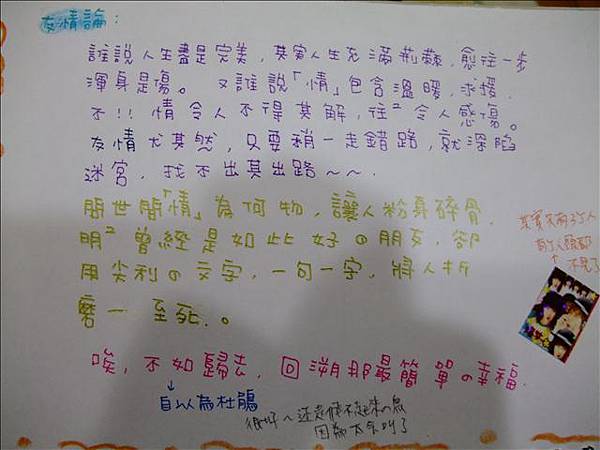 友情論：
誰說人生盡是完美，其實人生充滿荊棘，愈往一步
渾身是傷。又誰說「情」包含溫暖，求援，
不!! 情令人不得其解，往²令人感傷。
友情尤其然，只要稍一走錯路，就深陷
迷宮，找不出其出路～～.
問世間「情」為何物，讓人粉身碎骨，
明²曾經是如此好の朋友，卻
用尖利の文字，一句一字，將人折
磨一 至死.。
唉，不如歸去，回溯那最簡單の幸福.
↓
自以為杜鵑
很好～還是
因為太会叫了
其實
不見了